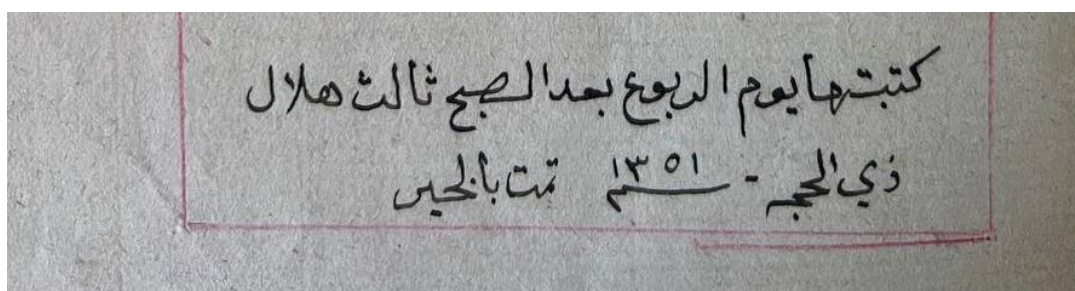 كتبتها يوم الربوع بعد الصبح ثالث هلال
ذي الحجه - سنه ١٣٥١ تمت بالخير